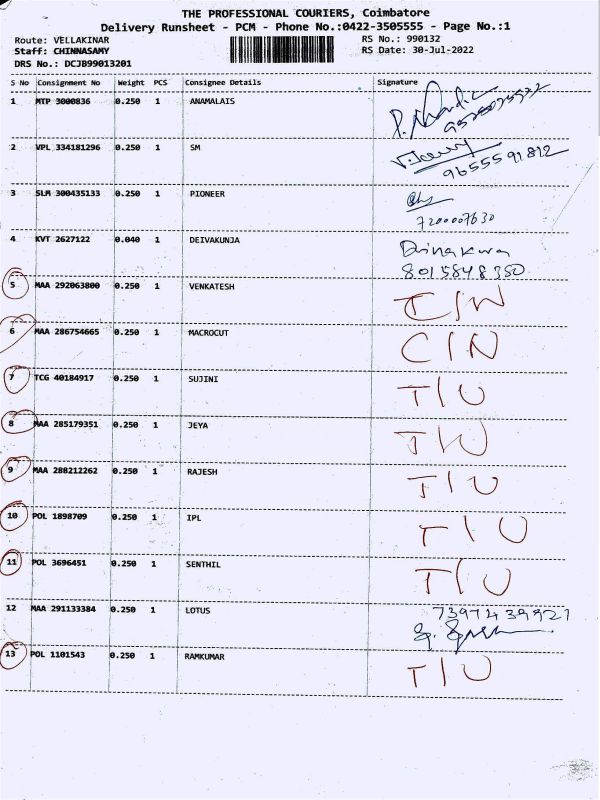 THE PROFESSIONAL COURIERS, Coimbatore
Delivery Runsheet - PCM - Phone No.:0422-3505555 - Page No.:1
Route: VELLAKINAR RS No.: 990132
Staff: CHINNASAMY RS Date: 30-Jul-2022
DRS No.: DCJB99013201
S No Consignment No Weight PCS Consignee Details Signature
1 MTP 3000836 0.250 1 ANAMALAIS
2 VPL 334181296 0.250 1 SM
9655591812
3 SLM 300435133 0.250 1 PIONEER
7200007630
4 KVT 2627122 0.040 1 DEIVAKUNJA
8015848350
5 MAA 292063800 0.250 1 VENKATESH
6 MAA 286754665 0.250 1 MACROCUT C/N
7 TCG 40184917 0.250 1 SUJINI T/U
8 MAA 285179351 0.250 1 JEYA T/U
9 MAA 288212262 0.250 1 RAJESH T/U
10 POL 1898709 0.250 1 IPL T/U
11 POL 3696451 0.250 1 SENTHIL T/U
12 MAA 291133384 0.250 1 LOTUS 7397439921
13 POL 1101543 0.250 1 RAMKUMAR T/U